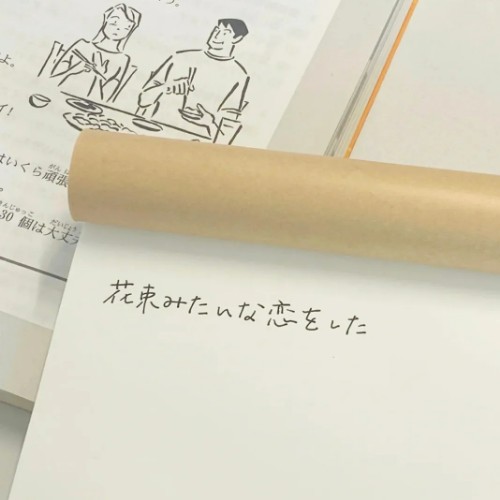 よ。
イ！
はいくら頑張
30 個は大丈
花束みたいな恋をした